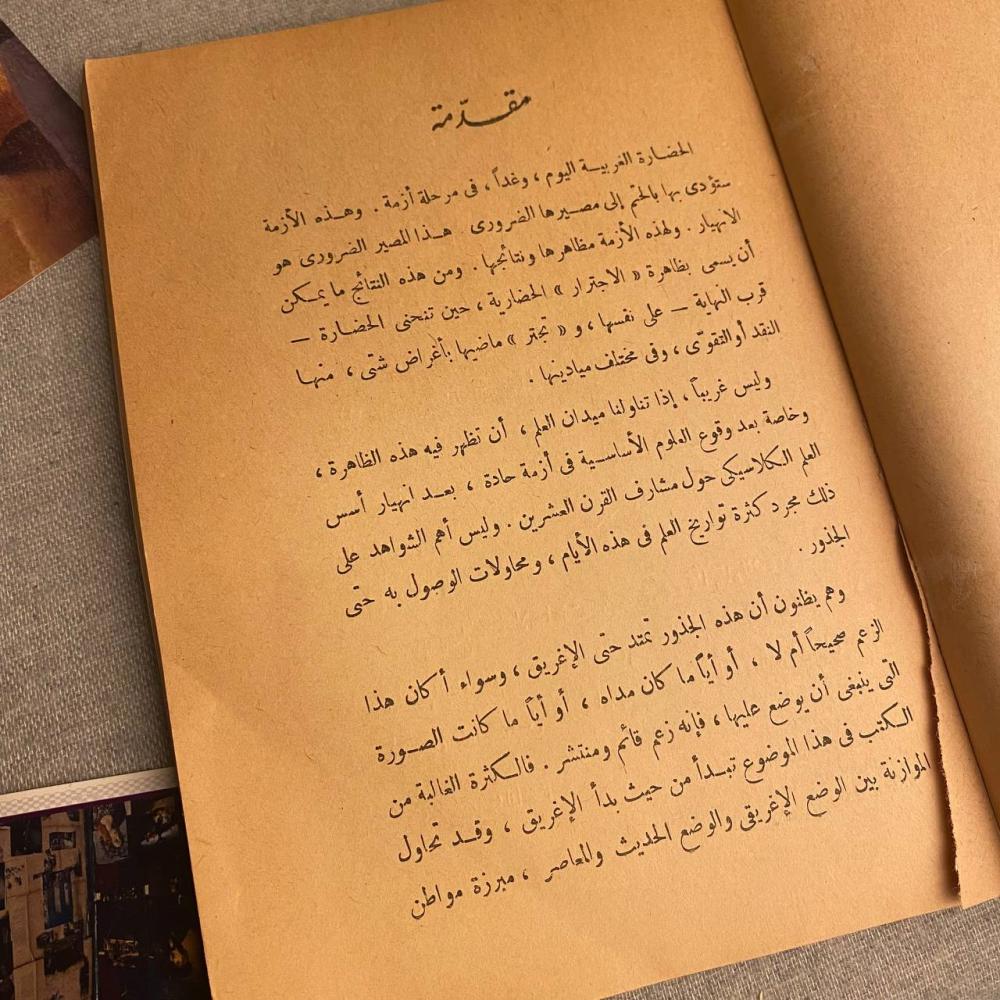 مقدّمة
الحضارة الغربية اليوم ، وغداً ، فى مرحلة أزمة . وهذه الأزمة
ستؤدى بها بالحتم إلى مصيرها الضرورى . هذا المصير الضرورى هو
الانهيار . ولهذه الأزمة مظاهرها ونتائجها . ومن هذه النتائج ما يمكن
أن يسمى بظاهرة « الاجترار » الحضارية ، حين تنحنى الحضارة —
قرب النهاية — على نفسها ، و « تجتر » ماضيها بأغراض شتى ، منها
النقد أو التقوّى ، وفى مختلف ميادينها .
وليس غريباً ، إذا تناولنا ميدان العلم ، أن تظهر فيه هذه الظاهرة ،
وخاصة بعد وقوع العلوم الأساسية فى أزمة حادة ، بعد انهيار أسس
العلم الكلاسيكى حول مشارف القرن العشرين . وليس أهم الشواهد على
ذلك مجرد كثرة تواريخ العلم فى هذه الأيام ، ومحاولات الوصول به حتى
الجذور .
وهم يظنون أن هذه الجذور تمتد حتى الإغريق ، وسواء أكان هذا
الزعم صحيحاً أم لا ، أو أياً ما كان مداه ، أو أياً ما كانت الصورة
التى ينبغى أن يوضع عليها ، فإنه زعم قائم ومنتشر . فالكثرة الغالبة من
الكتب فى هذا الموضوع تبدأ من حيث بدأ الإغريق ، وقد تحاول
الموازنة بين الوضع الإغريقى والوضع الحديث والمعاصر ، مبرزة مواطن